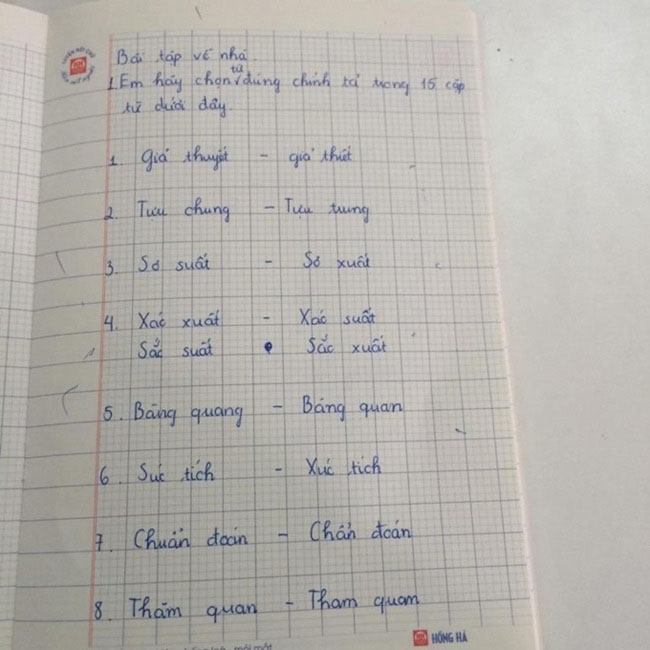 Bài tập về nhà.
1. Em hãy chọn từ đúng chính tả trong 15 cặp
từ dưới đây.
1. Giả thuyết - giả thiết
2. Tựu chung - Tựu trung
3. Sơ suất - Sơ xuất
4. Xác xuất - Xác suất
Sắc suất Sắc xuất
5. Bàng quang - Bàng quan
6. Súc tích - Xúc tích
7. Chuẩn đoán - Chẩn đoán
8. Thăm quan - Tham quan
HỒNG HÀ